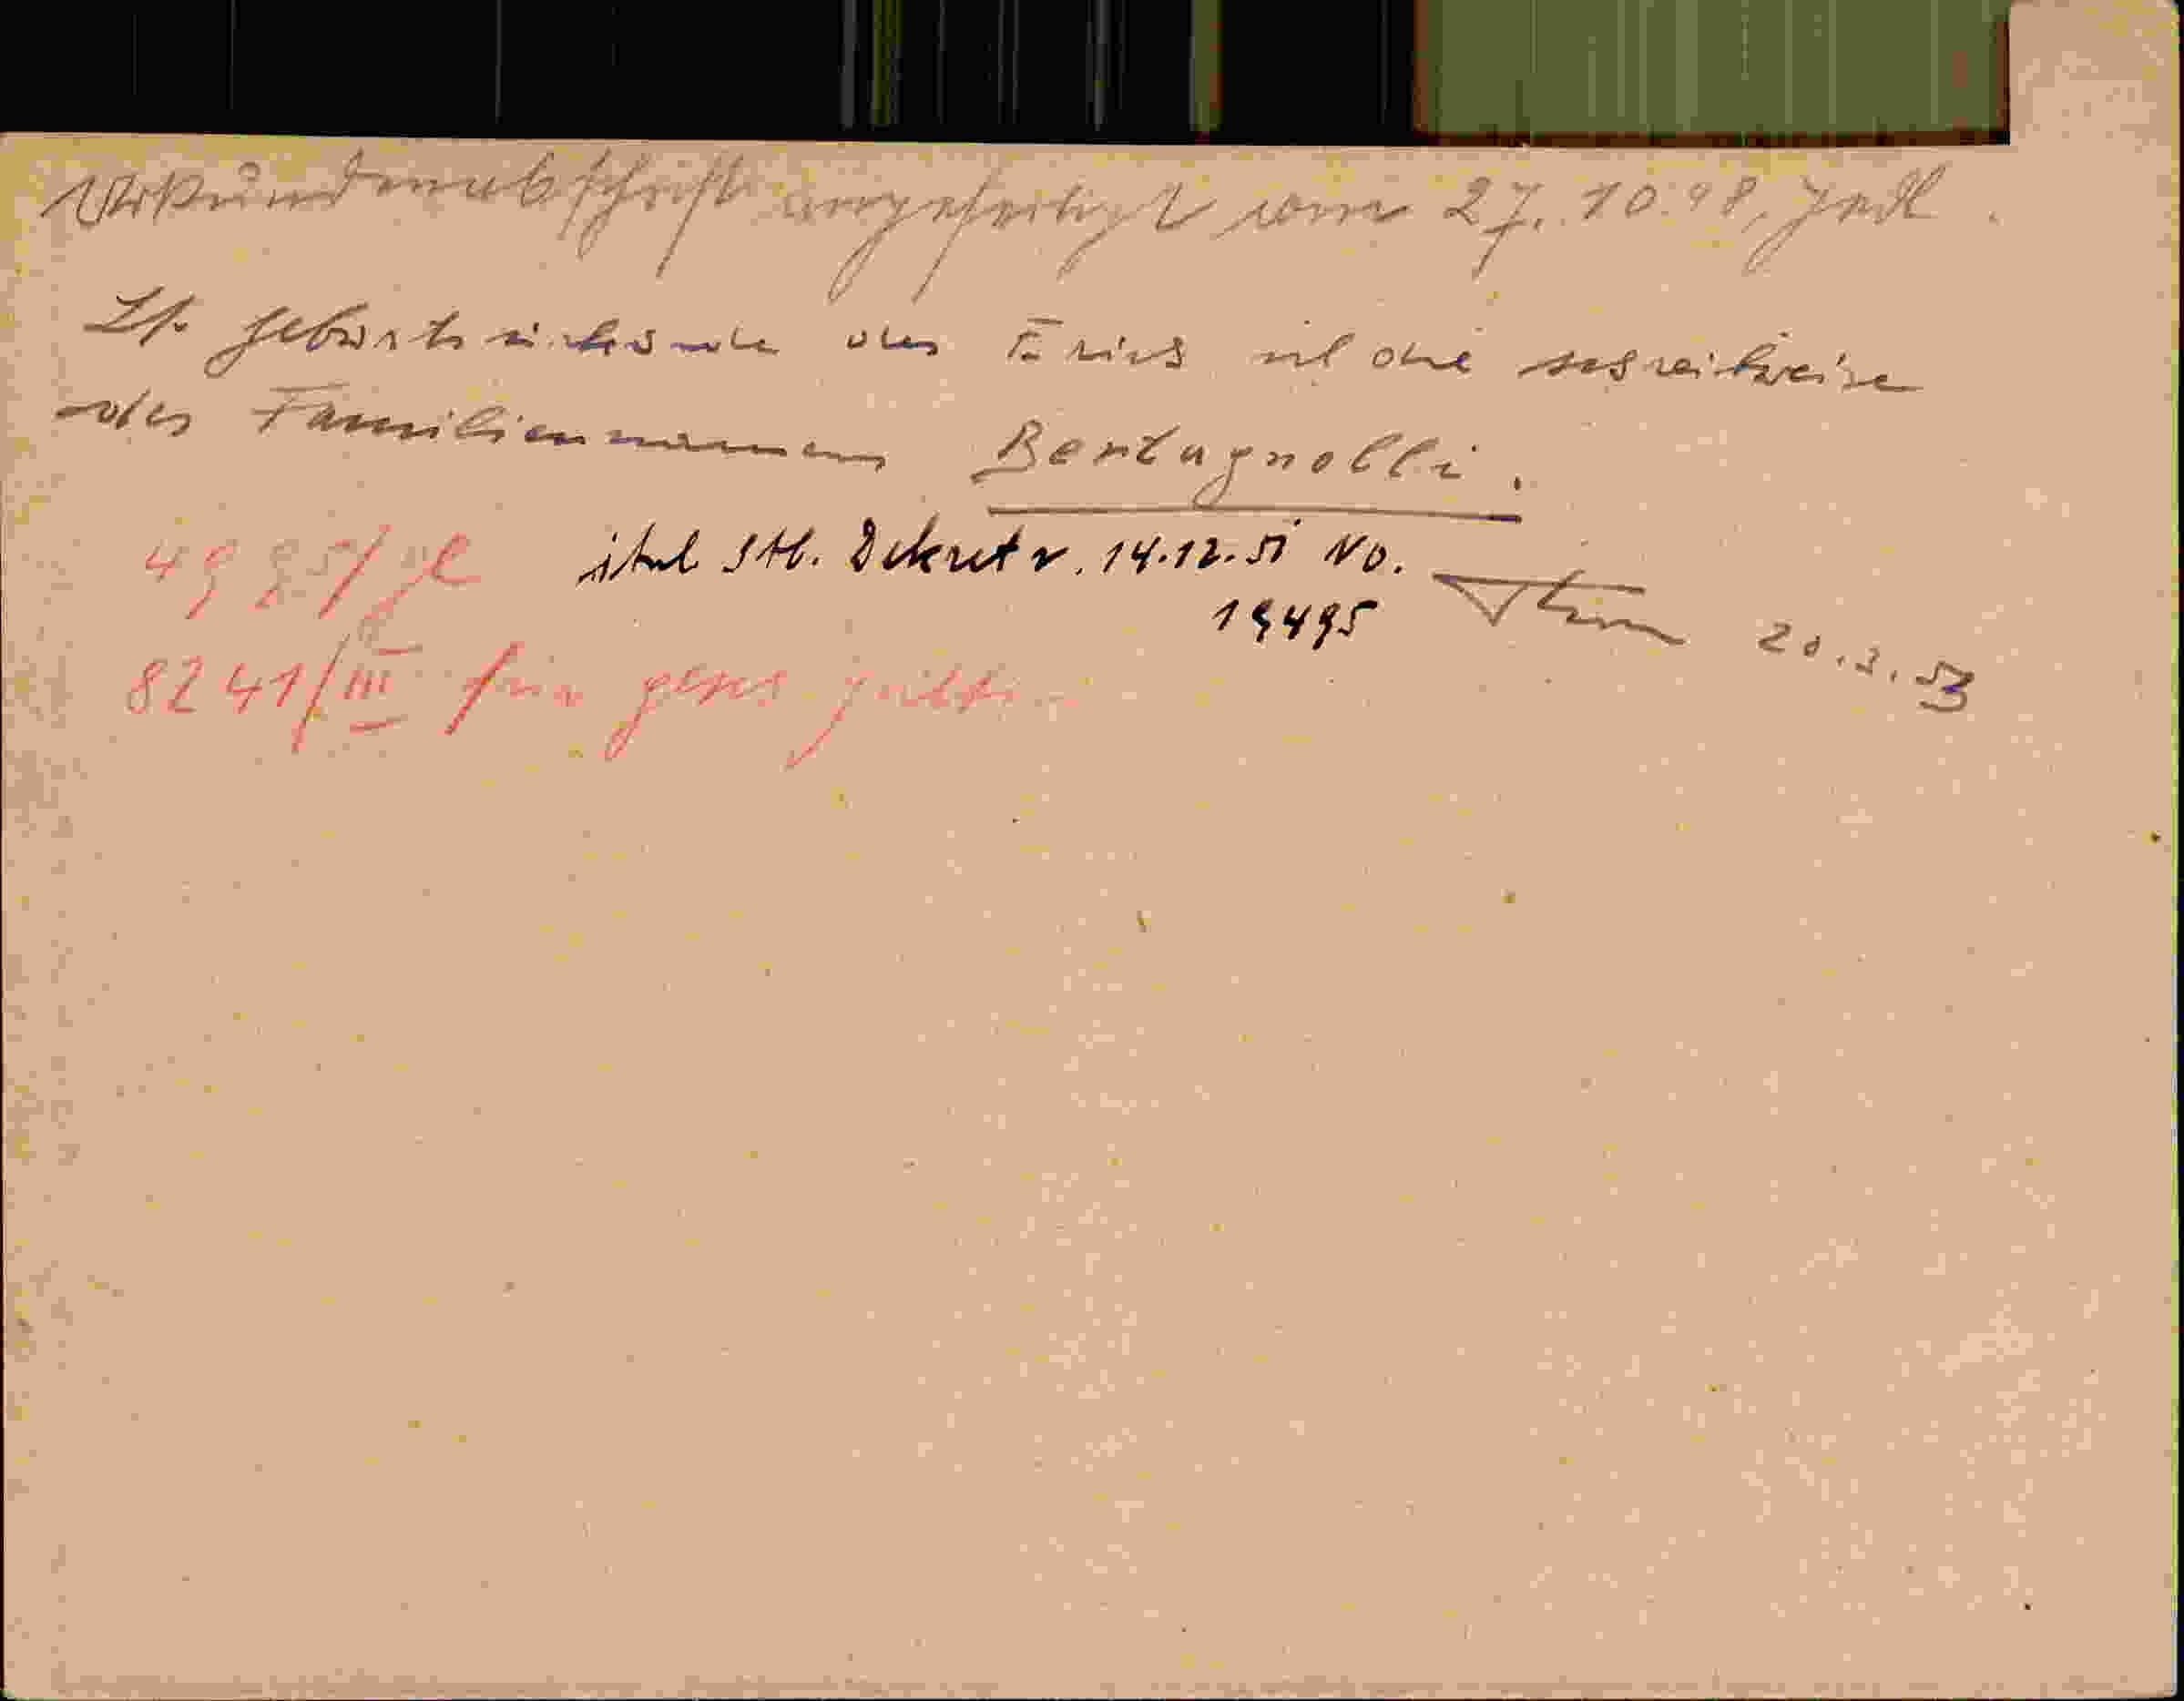 Urkundenabschrift angefertigt am 27.10.48,
Lt. Geburtsurkunde des Erich ist die Schreibweise
des Familiennamens Bertagnolli.
4985/
ital. Stb. Dekret v. 14.12.51 No.
19495
20.3.53
8241/III